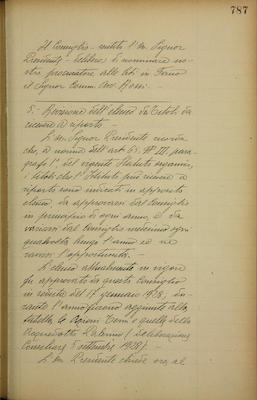 787
Il Consiglio - sentito l'on. Signor
Presidente - delibera di nominare
procuratore alle liti in Torino
il Signor Comm. Avv. Rossi. -
5. Revisione dell'elenco dei titoli da
ricevere a riporto
L'on. Signor Presidente ricorda
che, a norma dell'art. 61 III, para-
grafo 1° del vigente Statuto organico,
i titoli che l'Istituto può ricevere a
riporto sono indicati in apposito
elenco, da approvarsi dal Consiglio
in principio di ogni anno, e da
variarsi dal Consiglio medesimo ogni
qualvolta lungo l'anno se ne
ravvisi l'opportunità. -
L'elenco attualmente in vigore
fu approvato da questo Consiglio
in seduta del 17 gennaio 1928;
l'anno furono aggiunte alla
tabella le Azioni e quelle della
(deliberazione
Consiliare 5 settembre 1928).
L'on. Presidente chiede ora al